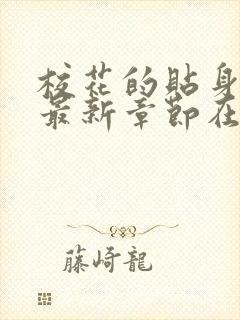 校花的貼身
最新章節在
藤崎龍